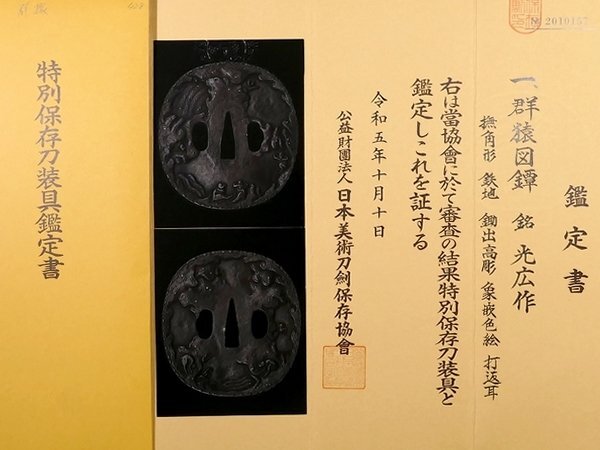 № 2010157
鑑定書
一、群猿図鐔 銘 光広作
撫角形 鉄地 鋤出高彫 象嵌色絵 打返耳
右は當協會に於て審査の結果特別保存刀装具と
鑑定しこれを証する
令和五年十月十日
公益財團法人 日本美術刀剣保存協會
特別保存刀装具鑑定書